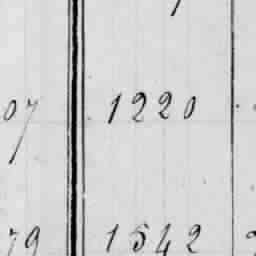 07 1220
79 1542